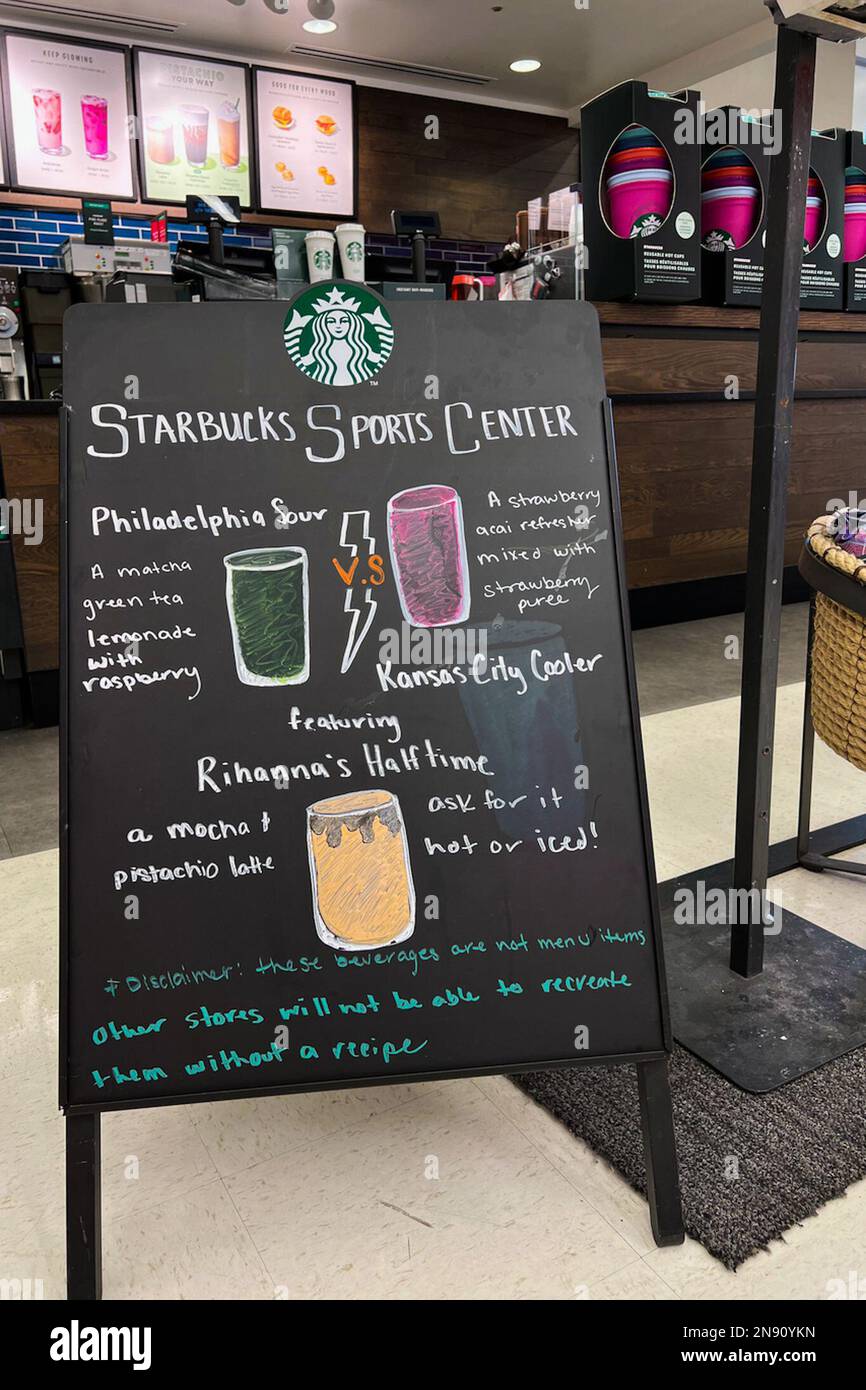 KEEP GLOWING
PISTACHIO
YOUR WAY
GOOD FOR EVERY MOOD
STARBUCKS SPORTS CENTER
Philadelphia Sour
A matcha
green tea
lemonade
with
raspberry
V.S
A strawberry
acai refresher
mixed with
strawberry
puree
Kansas City Cooler
featuring
Rihanna's Halftime
a mocha &
pistachio latte
ask for it
hot or iced!
* Disclaimer: these beverages are not menu items
Other stores will not be able to recreate
them without a recipe
TM
STARBUCKS
REUSABLE HOT CUPS
TASSES RÉUTILISABLES
POUR BOISSONS CHAUDES
alamy
Image ID: 2N90YKN
www.alamy.com